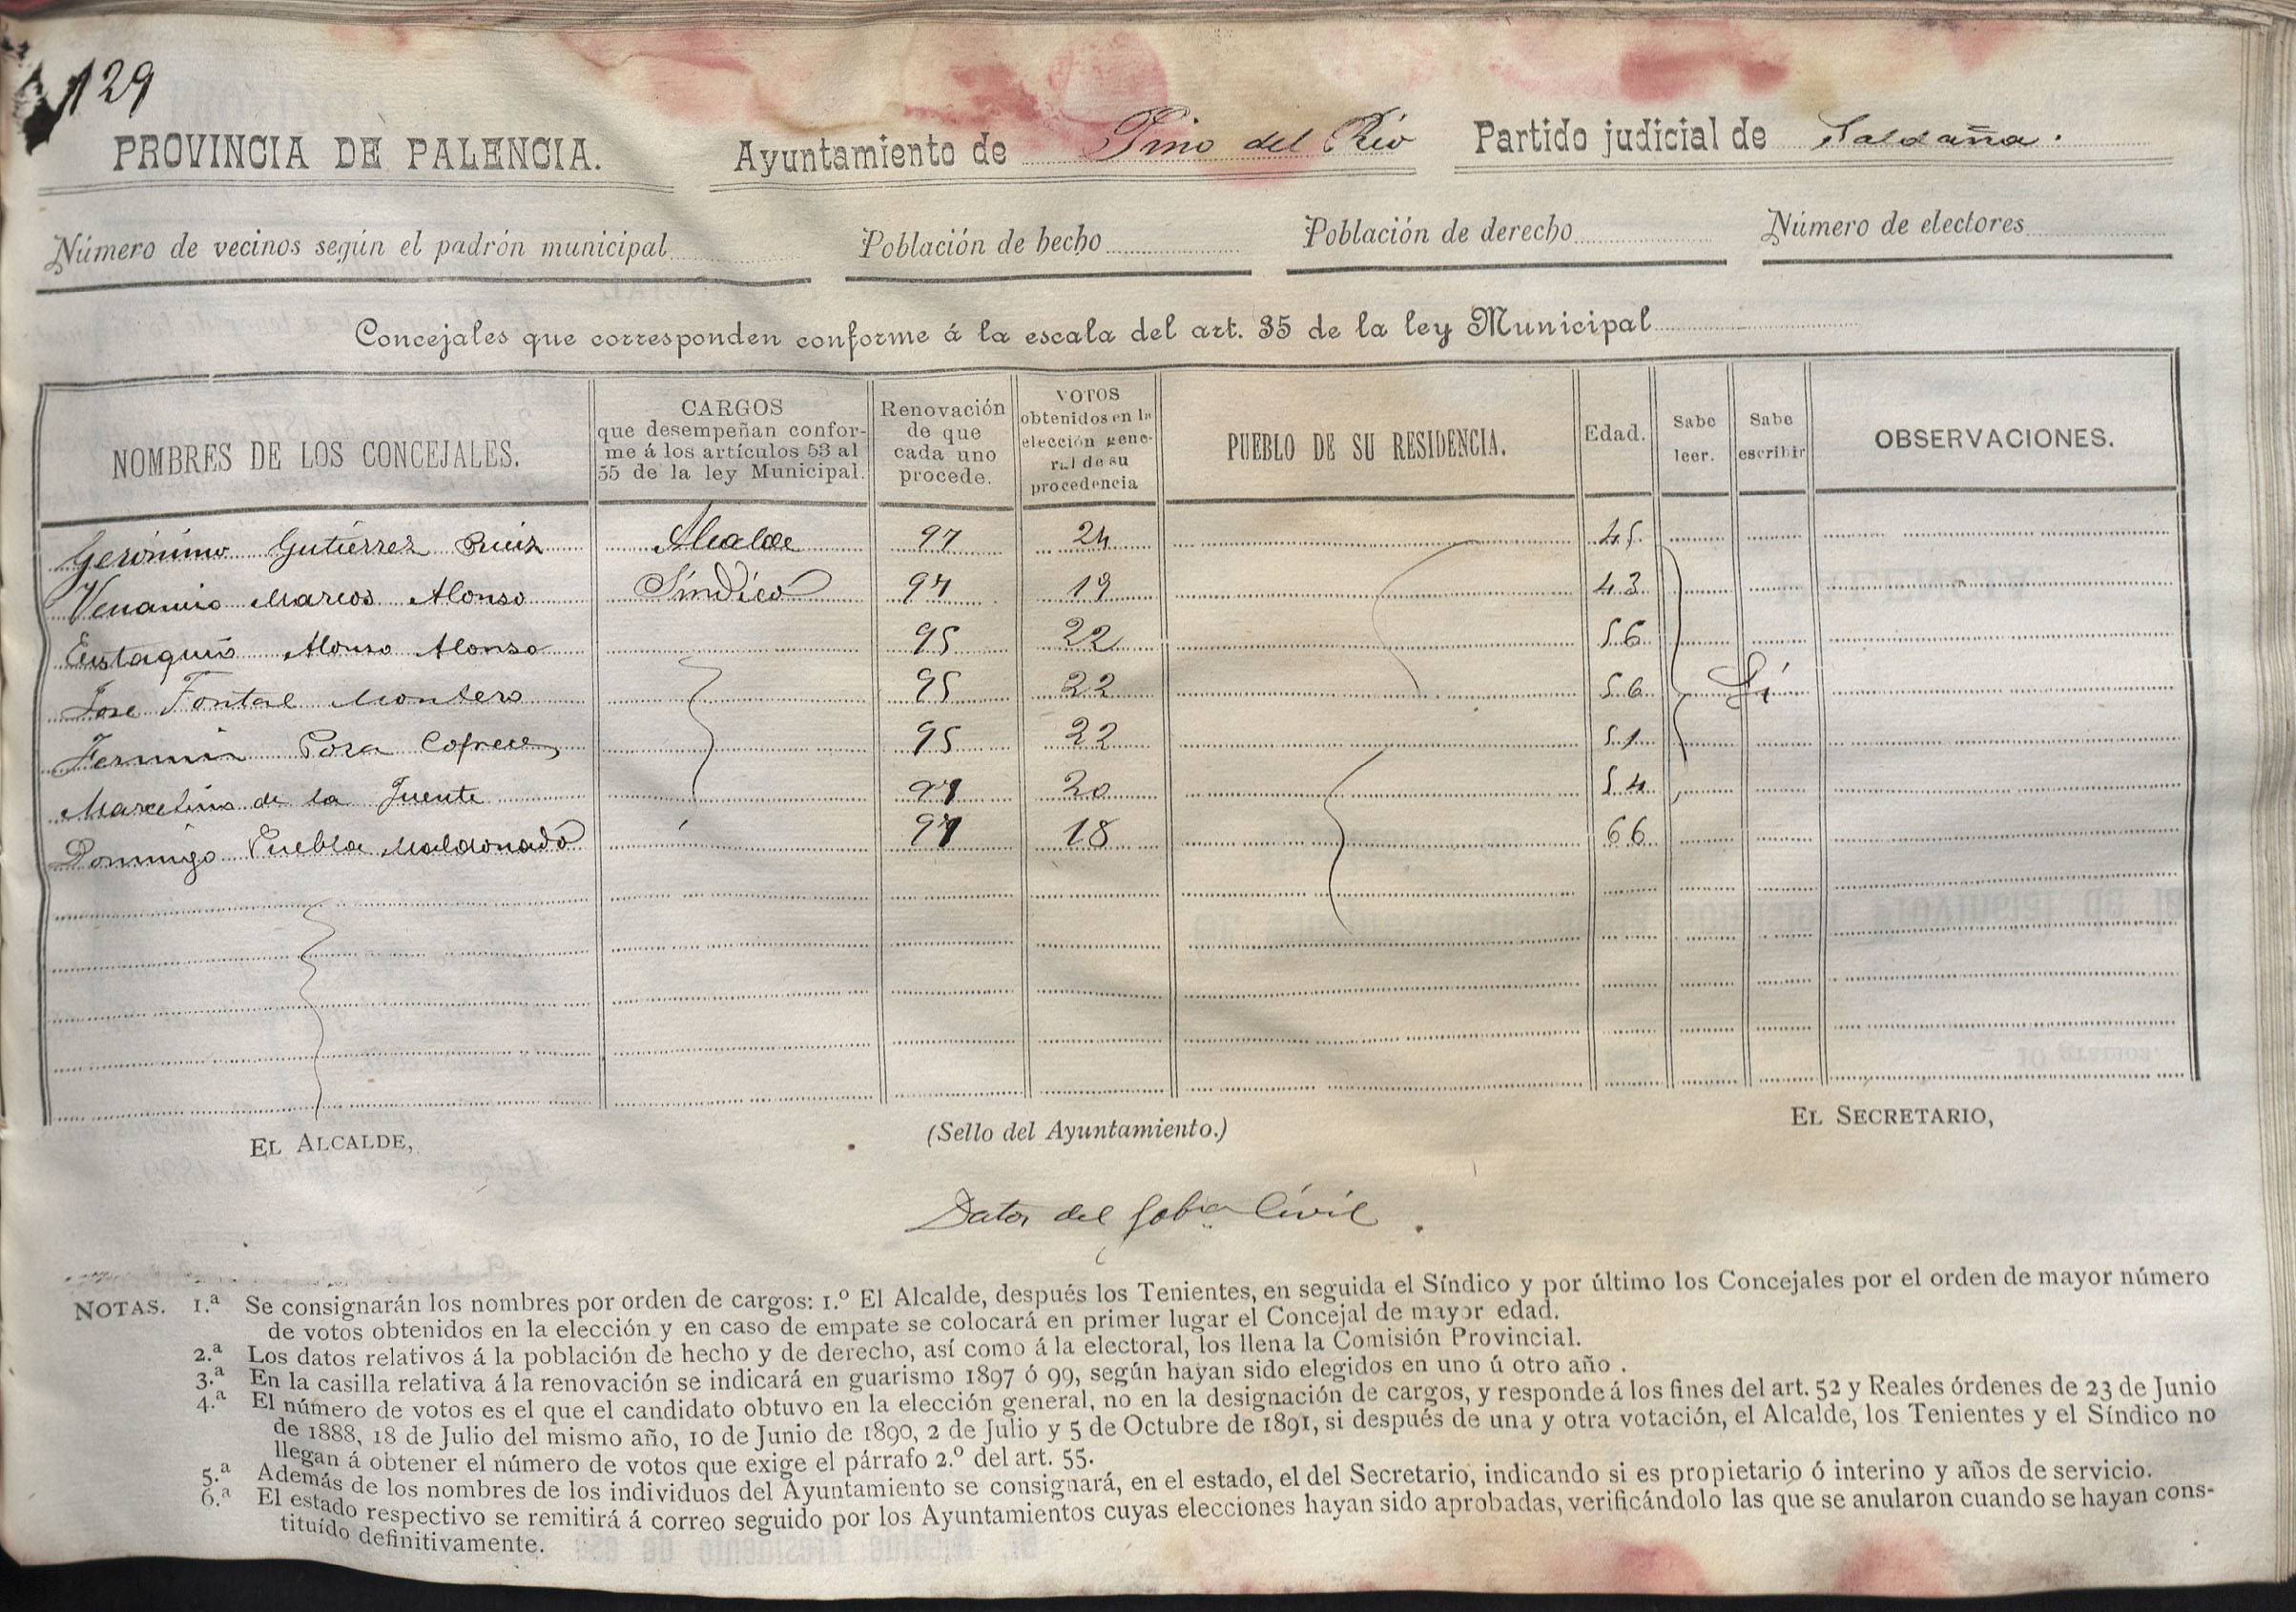 129
PROVINCIA DE PALENCIA. Ayuntamiento de Pino del Río Partido judicial de Saldaña.
Número de vecinos según el padrón municipal Población de hecho Población de derecho Número de electores
Concejales que corresponden conforme á la escala del art. 35 de la ley Municipal
NOMBRES DE LOS CONCEJALES. CARGOS que desempeñan conforme á los artículos 53 al 55 de la ley Municipal. Renovación de que cada uno procede. VOTOS obtenidos en la elección general de su procedencia PUEBLO DE SU RESIDENCIA. Edad. Sabe leer. Sabe escribir OBSERVACIONES.
Gerónimo Gutiérrez Ruiz Alcalde 97 24 45.
Venancio Marcos Alonso Síndico 97 19 43
Eustaquio Alonso Alonso 95 22 56
Jose Fontal Montero 95 22 56 Sí
Fermin 95 22 51
Marcelino de la Fuente 97 20 54
Domingo Puebla Maldonado 97 18 66
EL ALCALDE, (Sello del Ayuntamiento.) EL SECRETARIO,
Datos del Gobno Civil.
NOTAS. 1.ª Se consignarán los nombres por orden de cargos: 1.º El Alcalde, después los Tenientes, en seguida el Síndico y por último los Concejales por el orden de mayor número
de votos obtenidos en la elección y en caso de empate se colocará en primer lugar el Concejal de mayor edad.
2.ª Los datos relativos á la población de hecho y de derecho, así como á la electoral, los llena la Comisión Provincial.
3.ª En la casilla relativa á la renovación se indicará en guarismo 1897 ó 99, según hayan sido elegidos en uno ú otro año.
4.ª El número de votos es el que el candidato obtuvo en la elección general, no en la designación de cargos, y responde á los fines del art. 52 y Reales órdenes de 23 de Junio
de 1888, 18 de Julio del mismo año, 10 de Junio de 1890, 2 de Julio y 5 de Octubre de 1891, si después de una y otra votación, el Alcalde, los Tenientes y el Síndico no
llegan á obtener el número de votos que exige el párrafo 2.º del art. 55.
5.ª Además de los nombres de los individuos del Ayuntamiento se consignará, en el estado, el del Secretario, indicando si es propietario ó interino y años de servicio.
6.ª El estado respectivo se remitirá á correo seguido por los Ayuntamientos cuyas elecciones hayan sido aprobadas, verificándolo las que se anularon cuando se hayan cons-
tituído definitivamente.